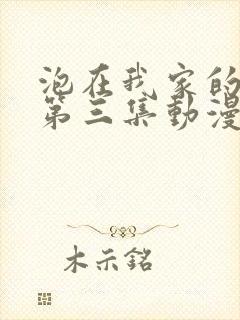 泡在我家的
第三集動漫
木示銘